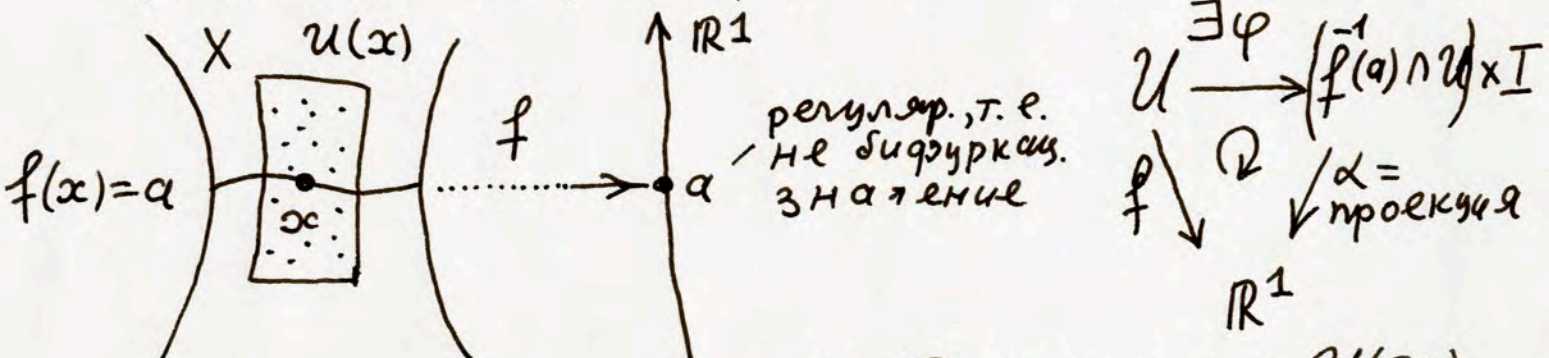 X U(x)
f(x)=a
x
f
ℝ1
a
регуляр., т. е.
не бифуркац.
значение
∃φ
U → (f⁻¹(a) ∩ U) × I
f
α =
проекция
ℝ1